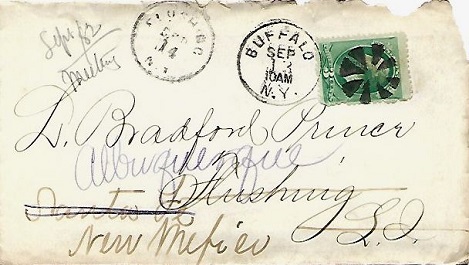 Sept 82
FLUSHING
SEP
14
N.Y.
BUFFALO
SEP
13
10AM
N.Y.
L. Bradford Prince
Albuquerque
Flushing
Santa Fe
L.I.
New Mexico